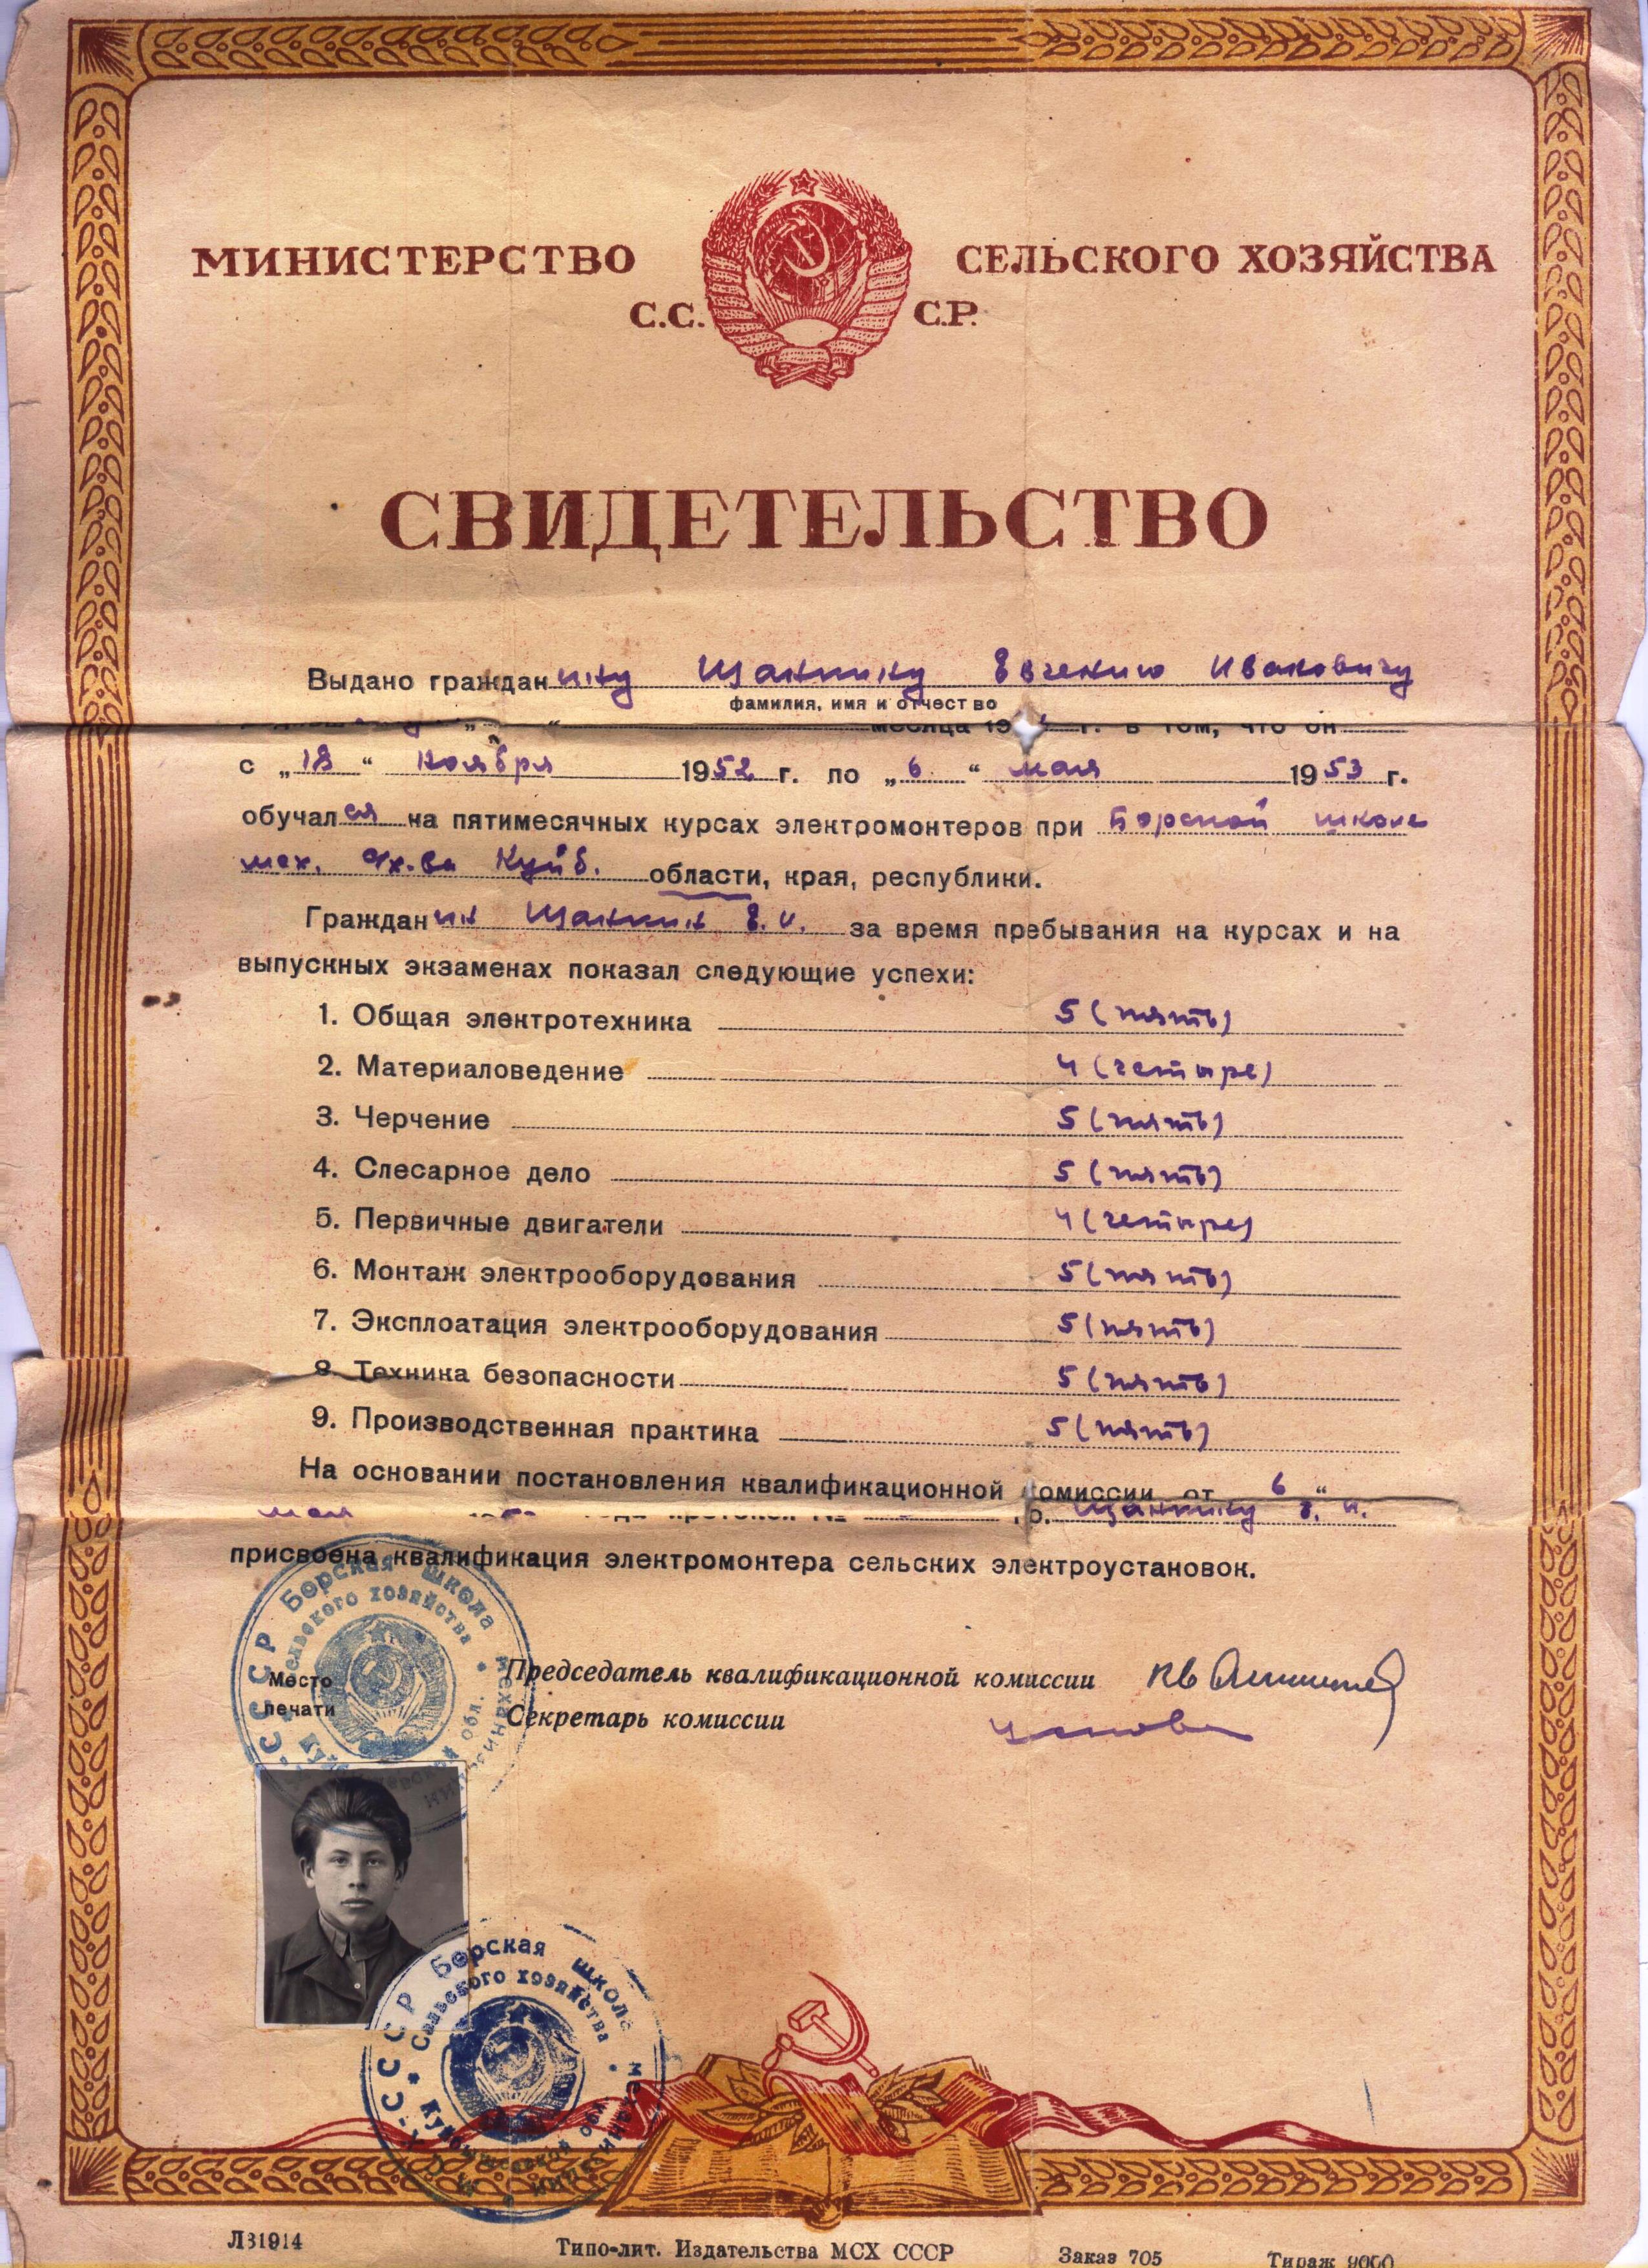 МИНИСТЕРСТВО СЕЛЬСКОГО ХОЗЯЙСТВА
С.С. С.Р.
СВИДЕТЕЛЬСТВО
Выдано гражданину Щанкину Евгению Ивановичу
фамилия, имя и отчество
месяца 19 г. в том, что он
с „18“ ноября 1952 г. по „6“ мая 1953 г.
обучался на пятимесячных курсах электромонтеров при Борской школе
мех. с/х-ва Куйб. области, края, республики.
Гражданин Щанкин Е.И. за время пребывания на курсах и на
выпускных экзаменах показал следующие успехи:
1. Общая электротехника 5 (пять)
2. Материаловедение 4 (четыре)
3. Черчение 5 (пять)
4. Слесарное дело 5 (пять)
5. Первичные двигатели 4 (четыре)
6. Монтаж электрооборудования 5 (пять)
7. Эксплоатация электрооборудования 5 (пять)
8. Техника безопасности 5 (пять)
9. Производственная практика 5 (пять)
На основании постановления квалификационной комиссии от 6“
мая года протокол № гр. Щанкину Е. И.
присвоена квалификация электромонтера сельских электроустановок.
Борская школа механизации
сельского хозяйства
Место
печати
Председатель квалификационной комиссии
Секретарь комиссии
МСХ СССР Борская школа механизации
Сельского хозяйства
Куйбышевской
Л31914 Типо-лит. Издательства МСХ СССР Заказ 705 Тираж 9000